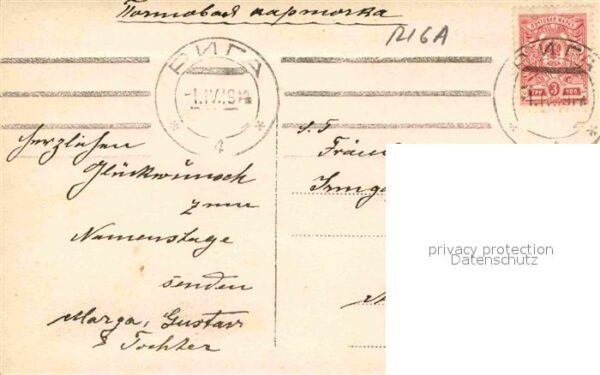 Почтовая карточка
RIGA
РИГА
-1.IV.1912
* 4 *
РИГА
ПОЧТОВАЯ МАРКА
ТРИ 3 КОП
herzlichen
Glückwunsch
zum
Namenstage
senden
Marga, Gustav
& Tochter
S. T.
Fräul
Irmga
privacy protection
Datenschutz